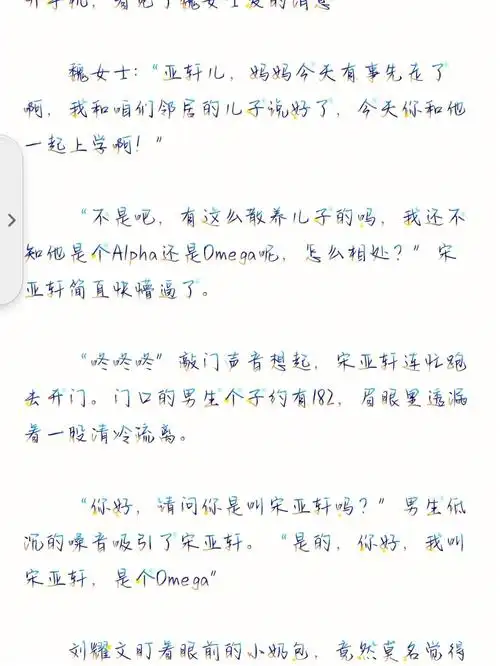 开手机，看见了魏女士发的消息
魏女士：“亚轩儿，妈妈今天有事先走了
啊，我和咱们邻居的儿子说好了，今天你和他
一起上学啊！”
“不是吧，有这么散养儿子的吗，我还不
知他是个Alpha还是Omega呢，怎么相处？”宋
亚轩简直快懵逼了。
“咚咚咚”敲门声音想起，宋亚轩连忙跑
去开门。门口的男生个子约有182，眉眼里透漏
着一股清冷流离。
“你好，请问你是叫宋亚轩吗？”男生低
沉的嗓音吸引了宋亚轩。“是的，你好，我叫
宋亚轩，是个Omega”
刘耀文盯着眼前的小奶包，竟然莫名觉得